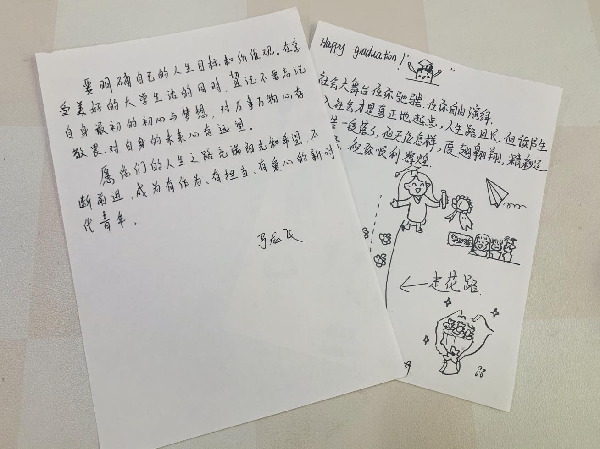 要明确自己的人生目标和价值观。在享
受美好的大学生活的同时,望记不要忘记
自身最初的初心与梦想,对万事万物心存
敬畏,对自身的未来心存远望。
愿你们的人生之路充满阳光和希望,不
断前进,成为有作为、有担当、有爱心的新时
代青年。
Happy graduation!
社会大舞台任你驰骋,任你自由演绎
入社会才是真正地起点,人生路且长
但无论怎样,展翅翱翔,精彩
顺利辉煌
走花路